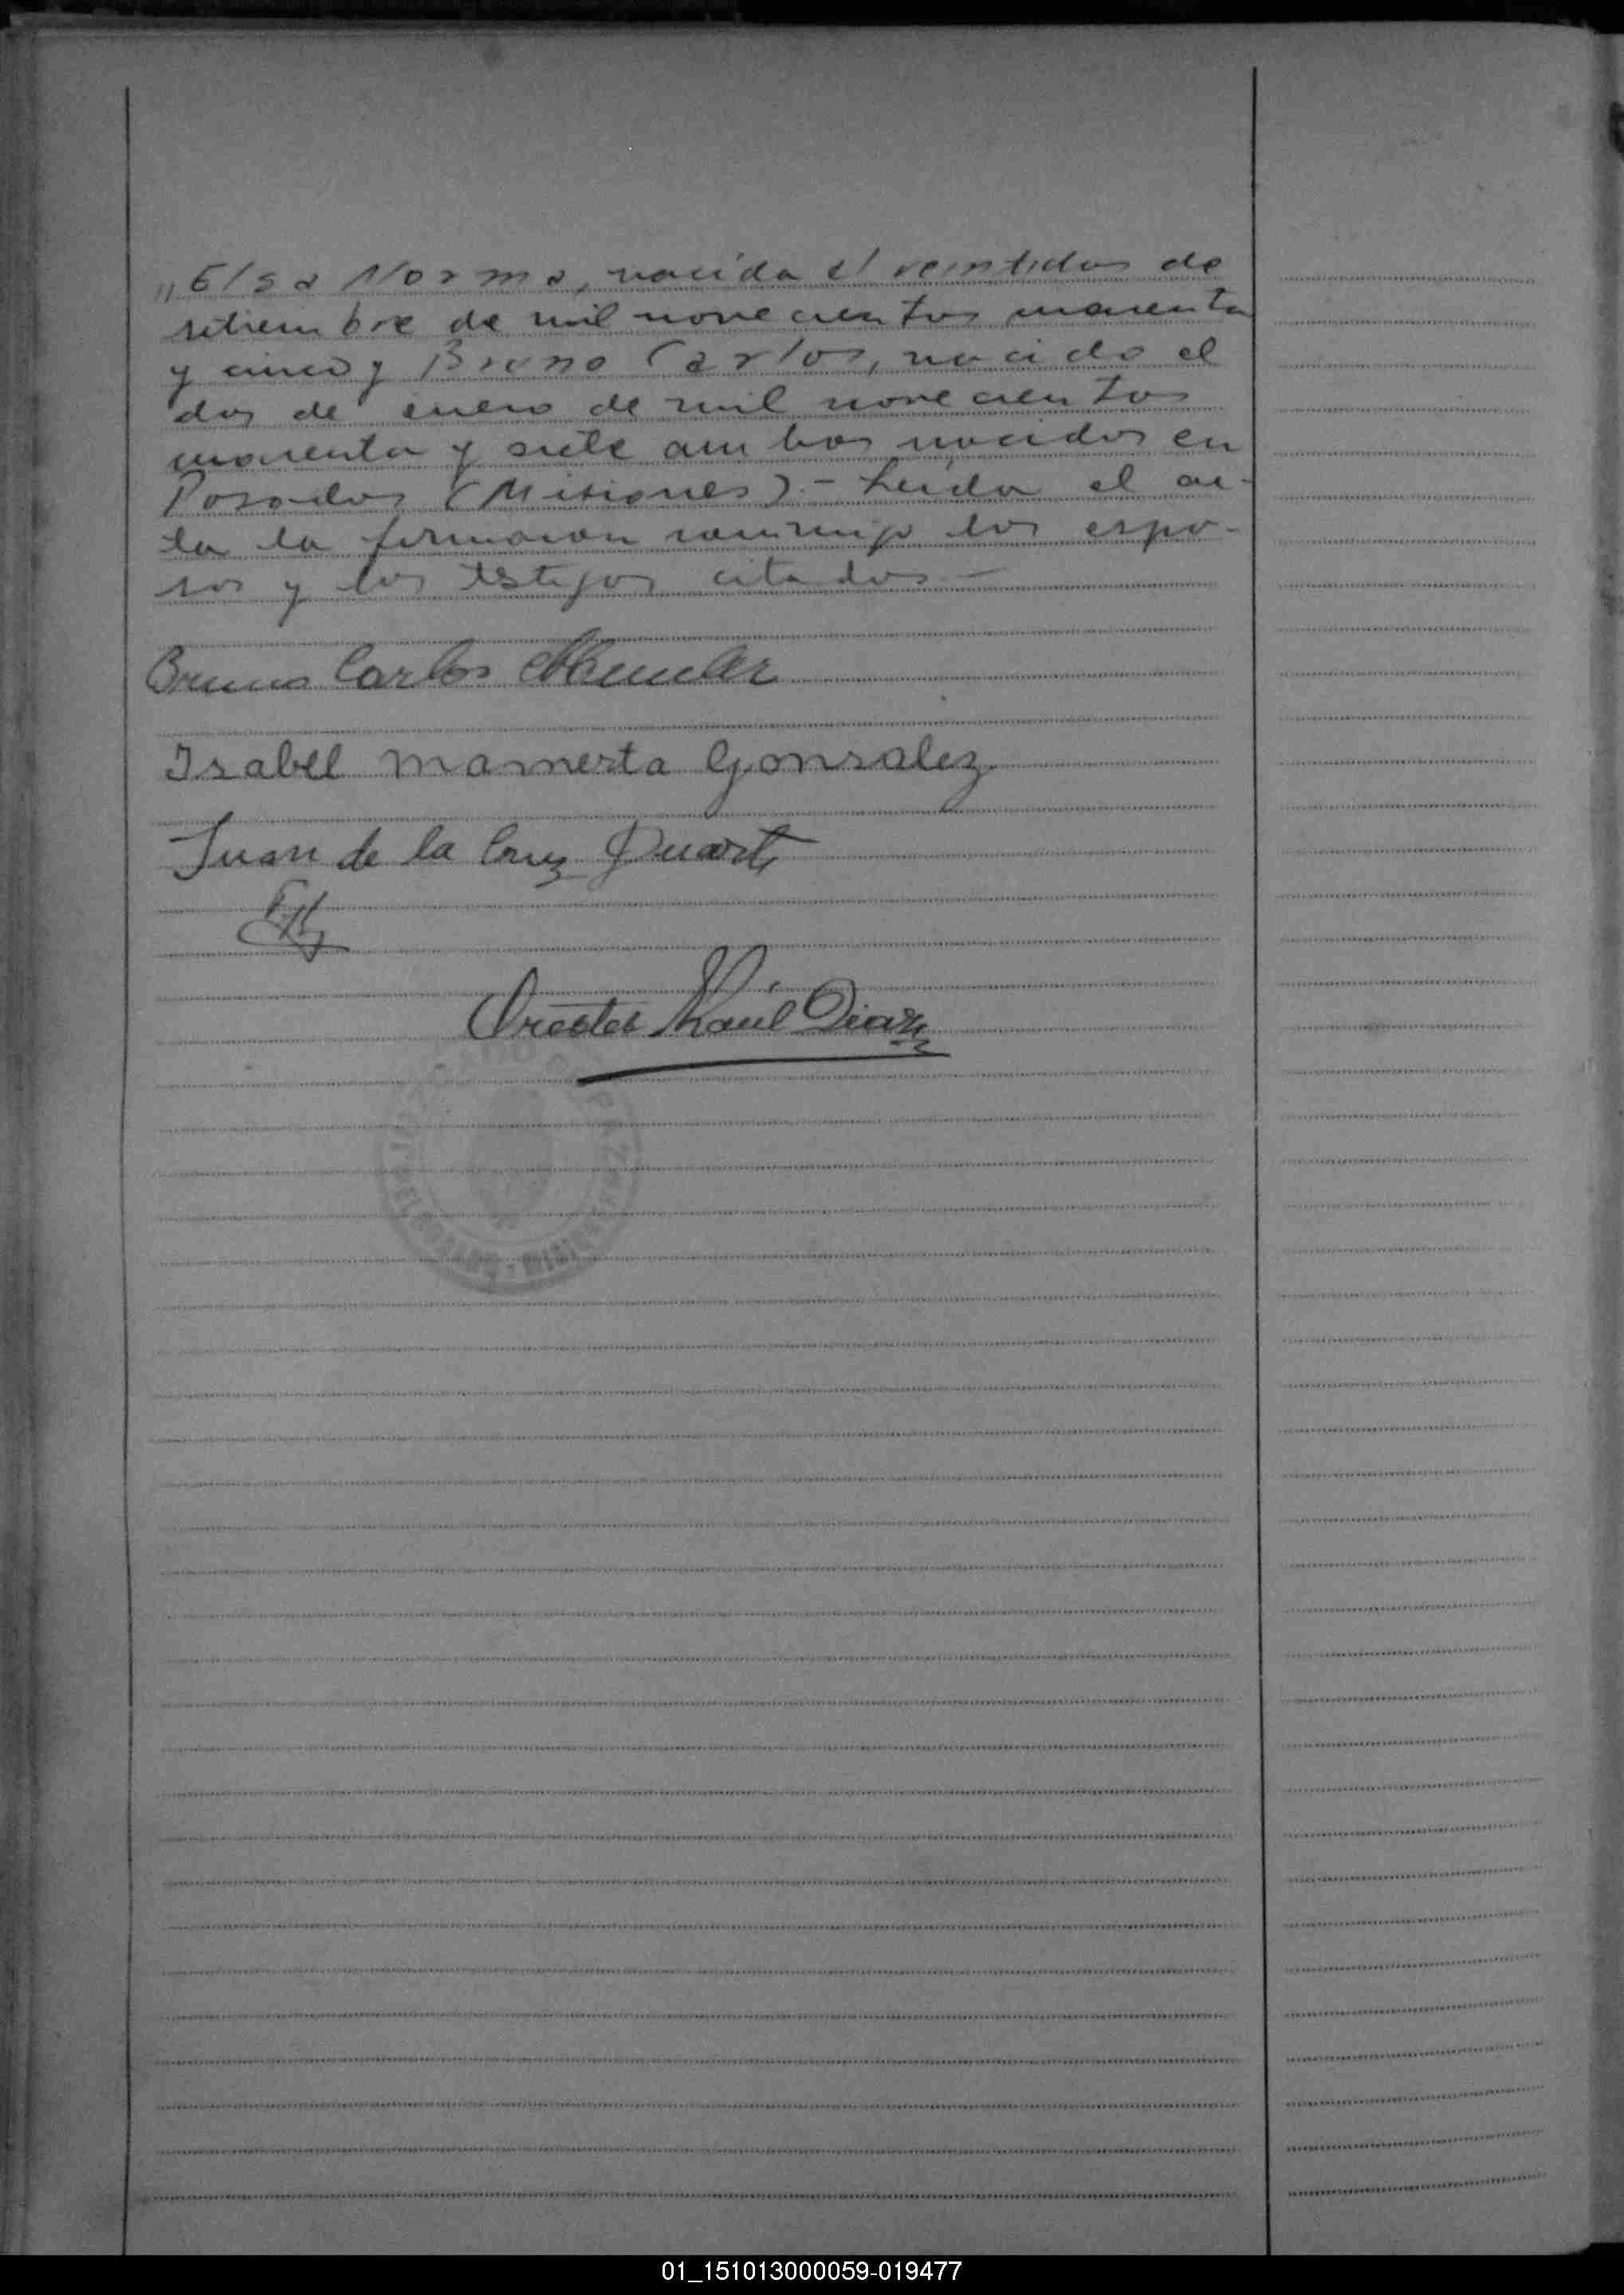 "Elsa Norma, nacida el veintidos de
setiembre de mil novecientos cuarenta
y cinco y Bruno Carlos, nacido el
dos de enero de mil novecientos
cuarenta y siete ambos nacidos en
Posadas (Misiones).- Leida el ac-
ta la firmaron conmigo los espo-
sos y los testigos citados.-
Bruno Carlos
Isabel Mamerta Gonsalez
Juan de la Cruz Duarte
Orestes Raúl Diaz
01_151013000059-019477